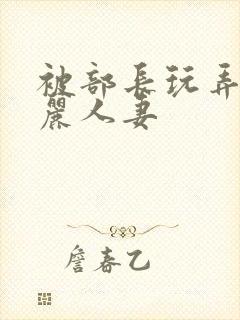 被部長玩弄
麗人妻
詹春乙